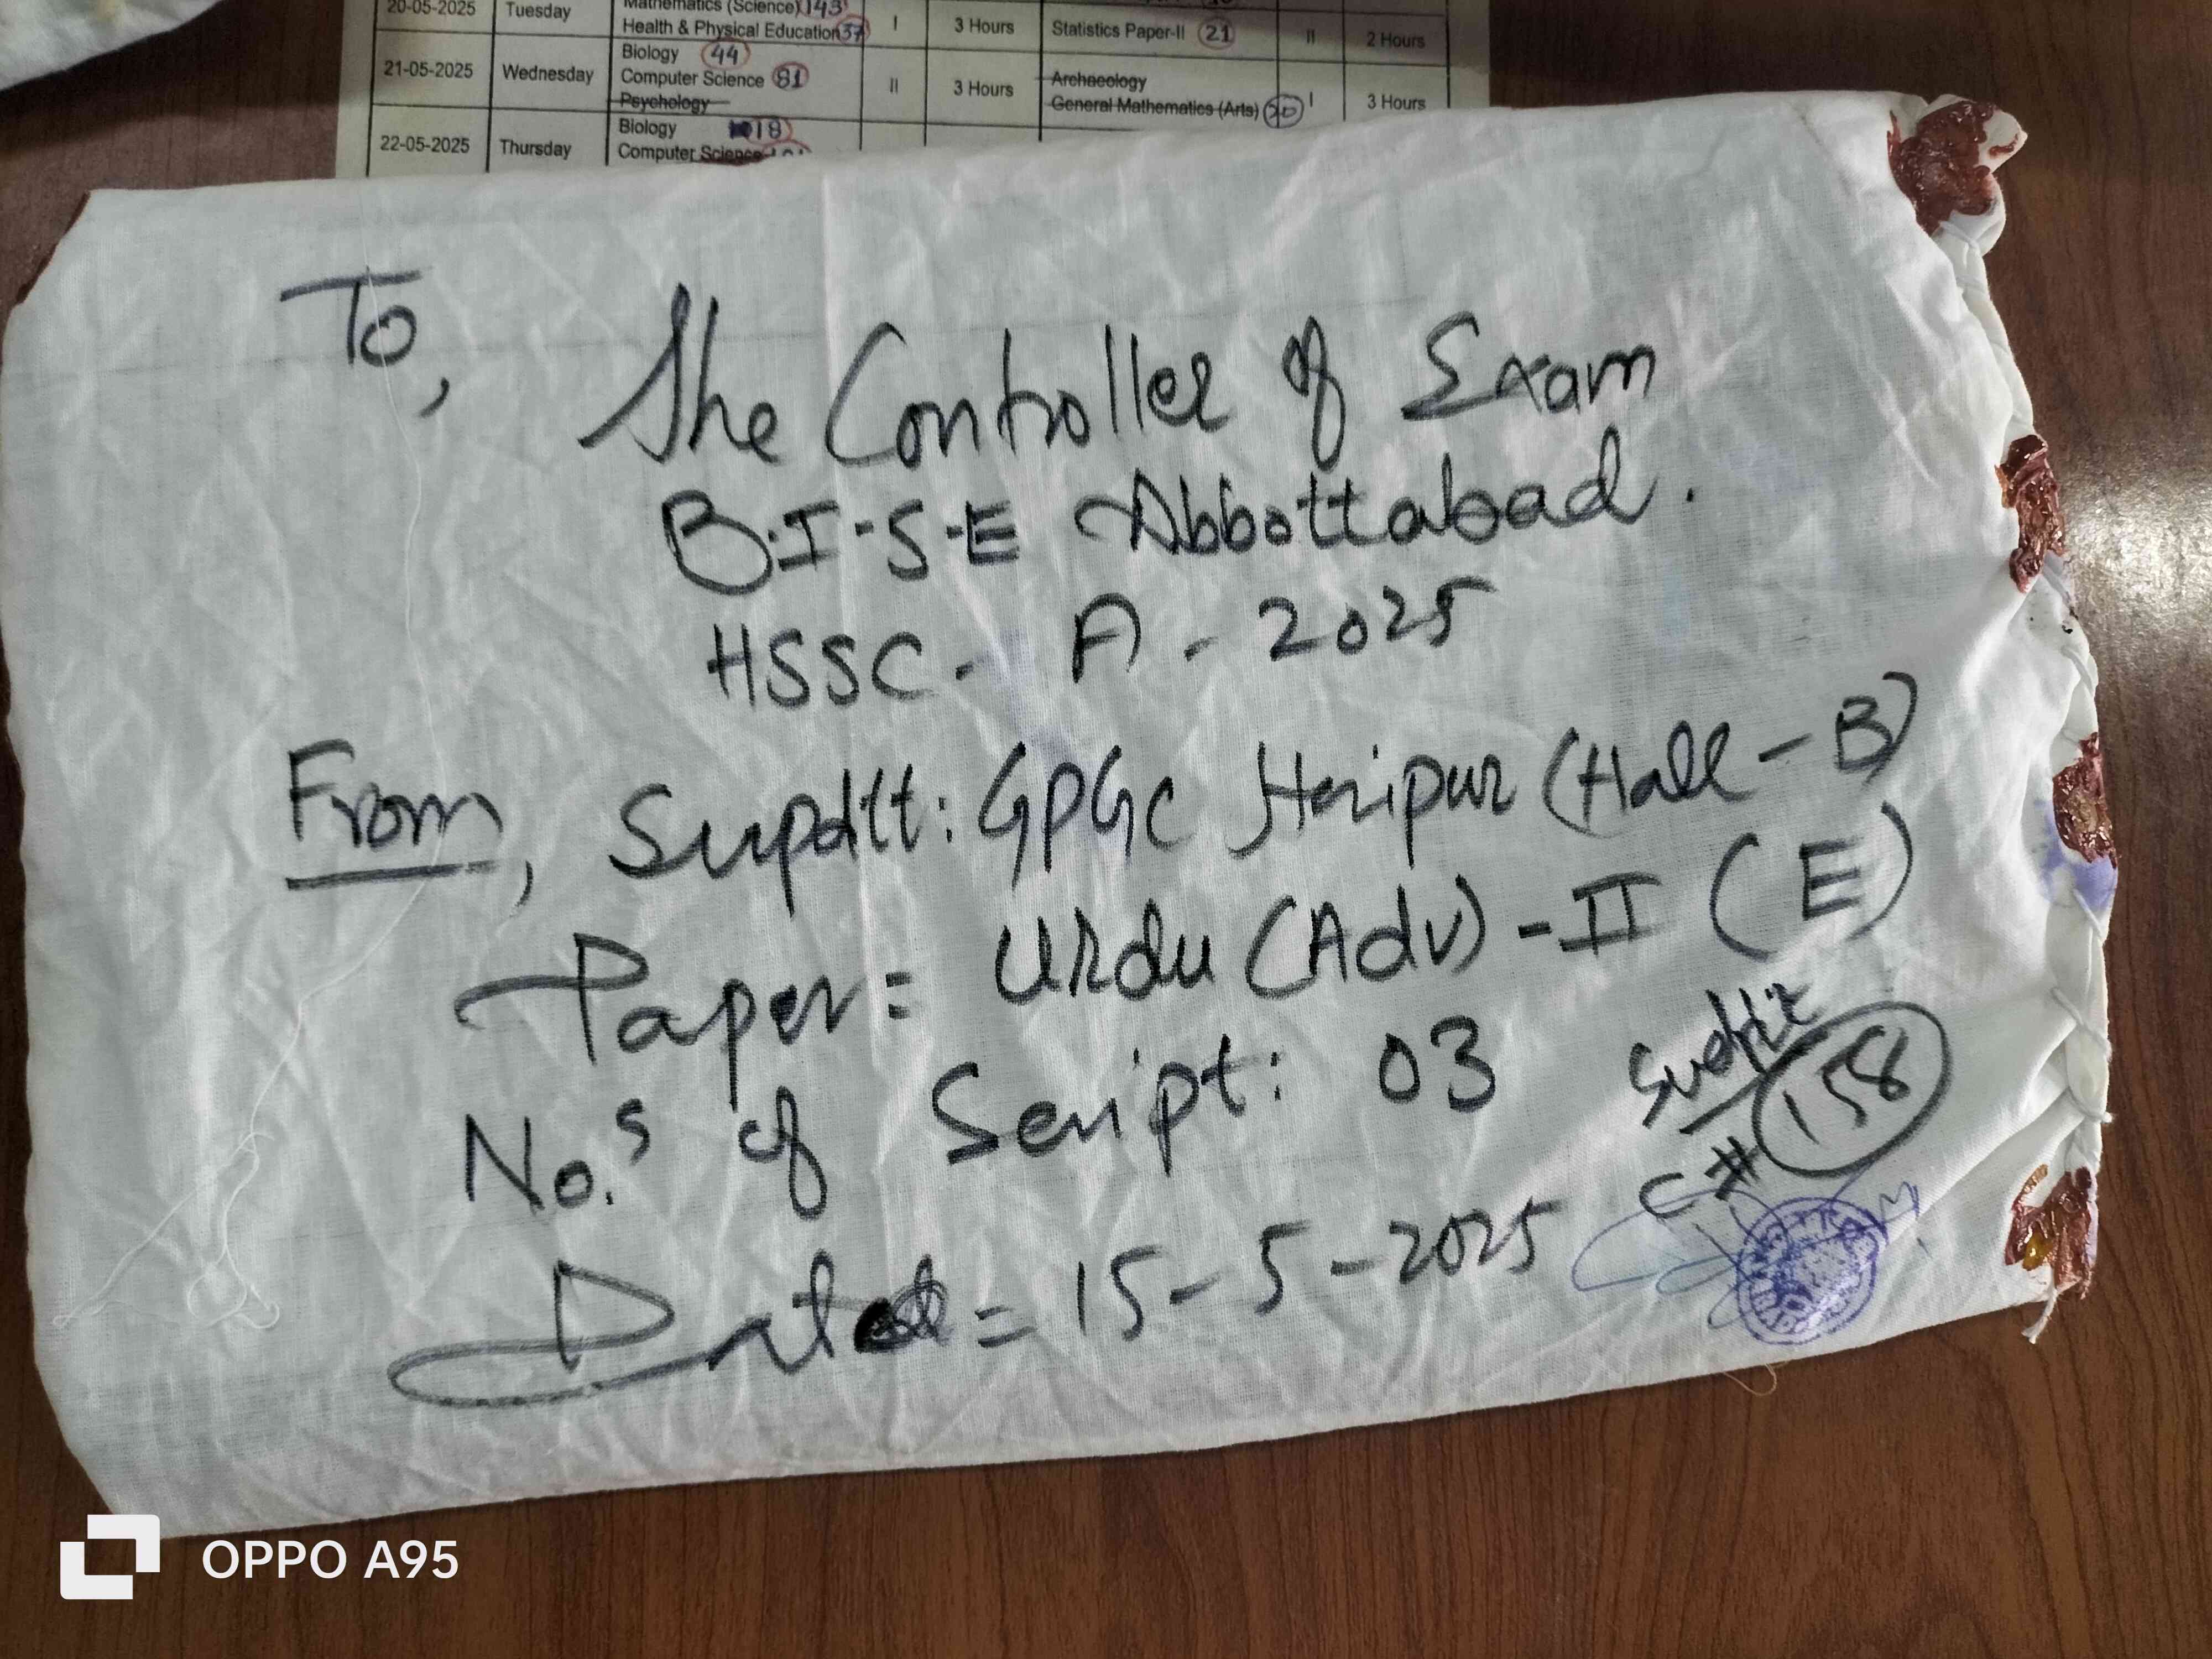 20-05-2025 Tuesday Mathematics (Science) 143 Health & Physical Education 37 I 3 Hours Statistics Paper-II 21 II 2 Hours
21-05-2025 Wednesday Biology 44 Computer Science 81 Psychology II 3 Hours Archaeology General Mathematics (Arts) 20 I 3 Hours
22-05-2025 Thursday Biology 18 Computer Science
To,
The Controller of Exam
B.I-S-E Abbottabad.
HSSC - A - 2025
From, Supdtt: GPGC Haripur (Hall - B)
Paper = Urdu (Adv) - II (E)
No.s of Script: 03
Date = 15-5-2025
C# 158
OPPO A95